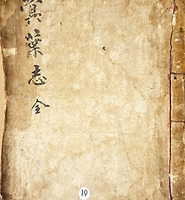 蓂葉志全
19